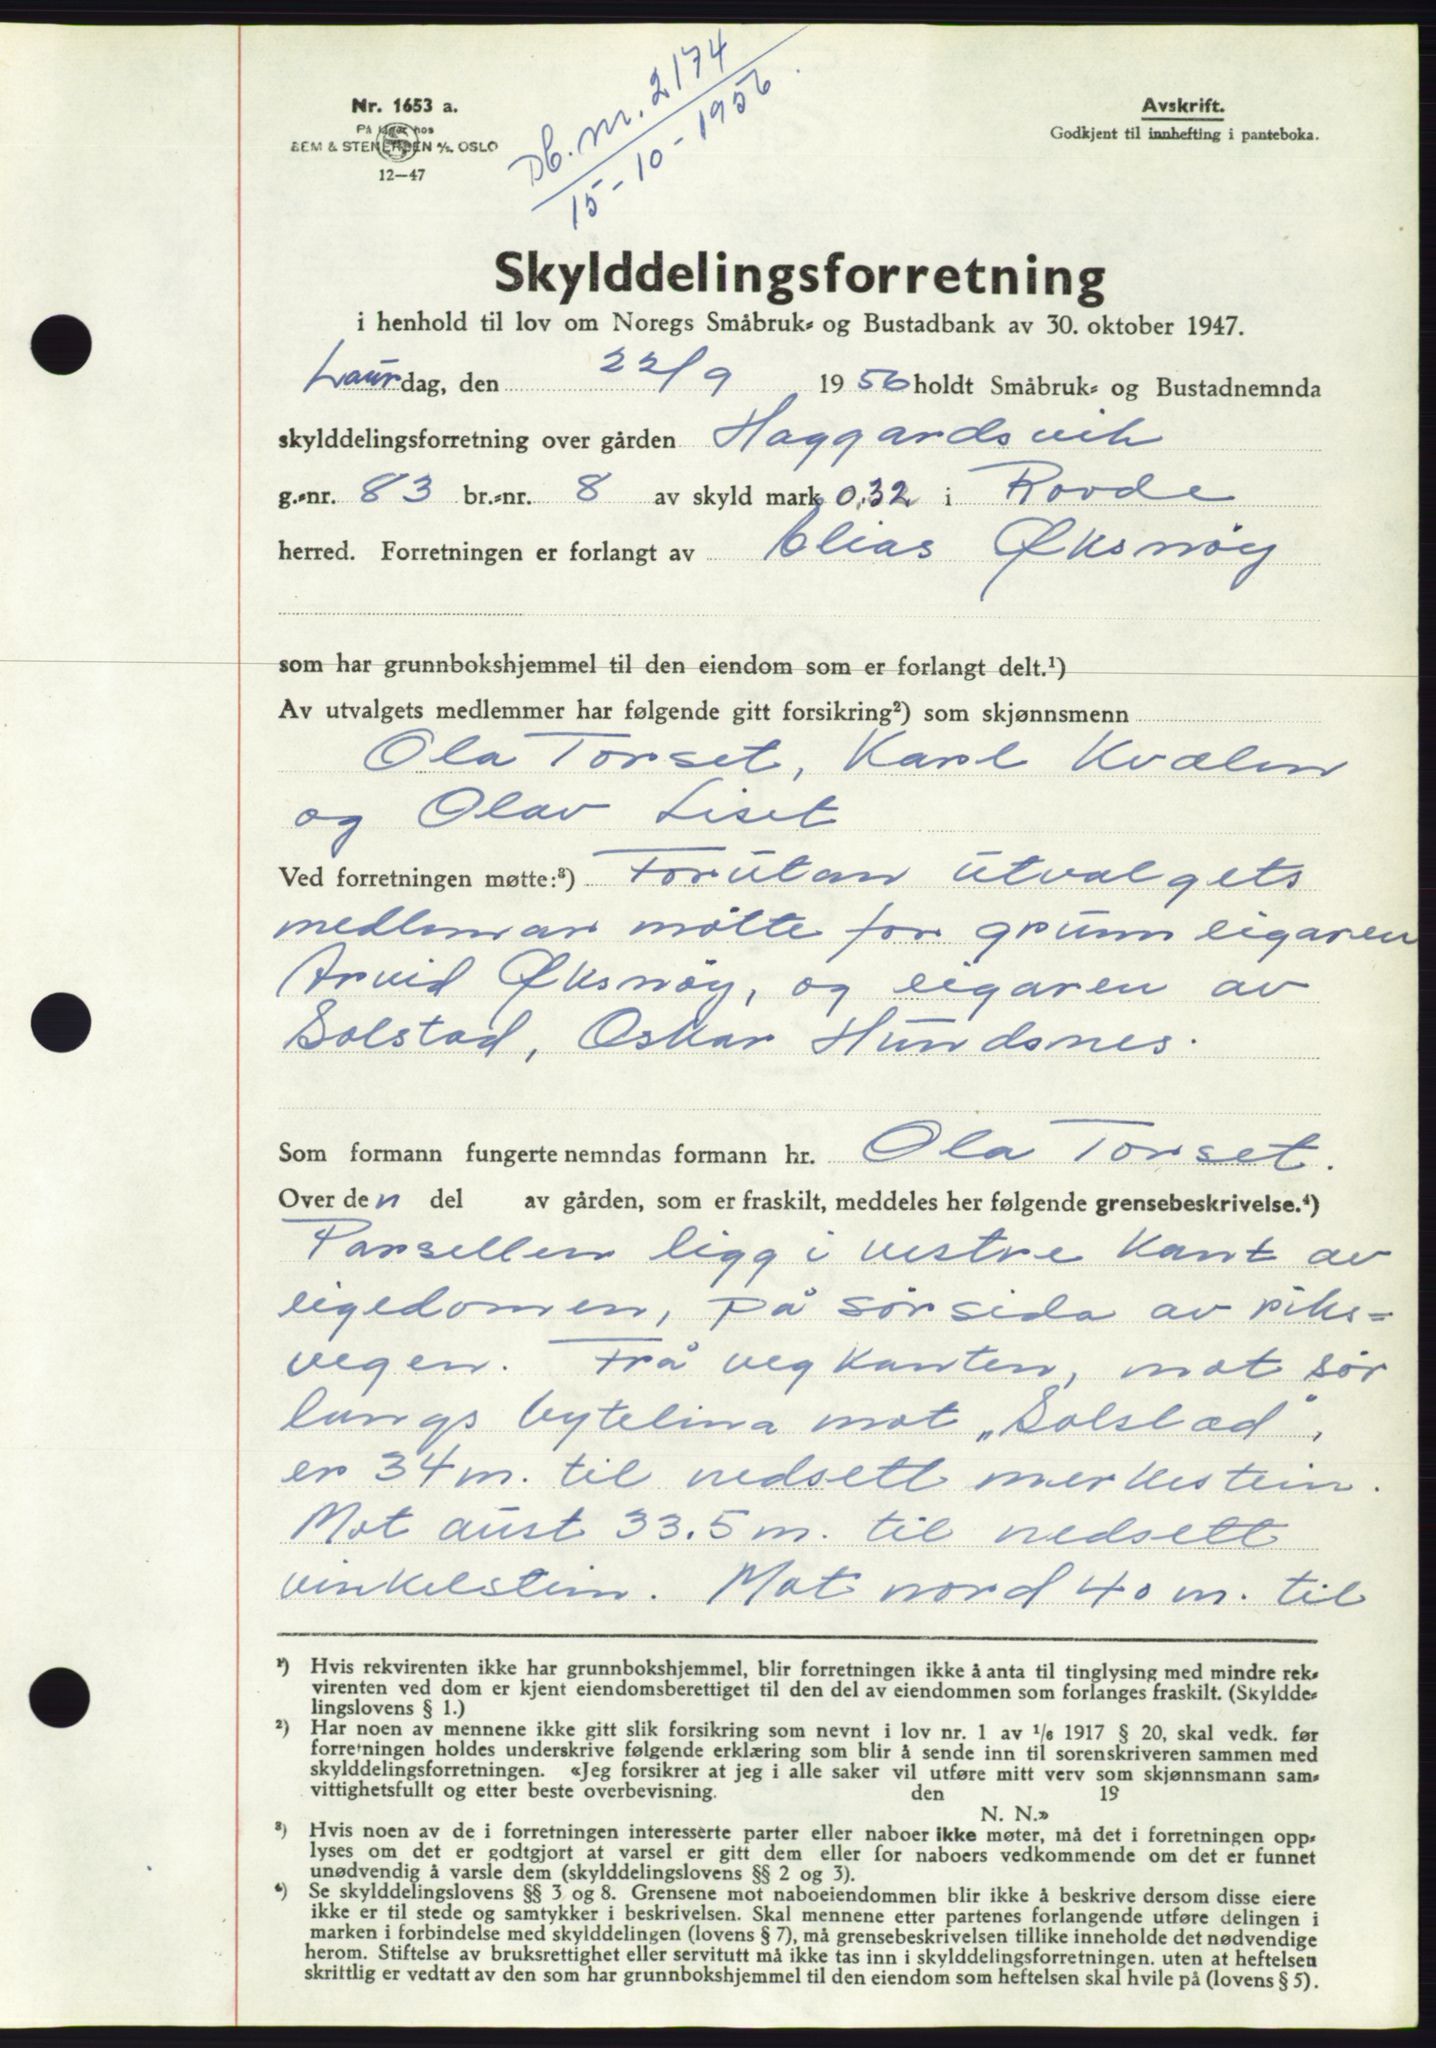 Db. nr. 2174
15-10-1956.
Nr. 1653 a.
På lager hos
SEM & STENERSEN A/S OSLO
12—47
Avskrift.
Godkjent til innhefting i panteboka.
Skylddelingsforretning
i henhold til lov om Noregs Småbruk- og Bustadbank av 30. oktober 1947.
Laurdag, den 22/9 1956 holdt Småbruk- og Bustadnemnda
skylddelingsforretning over gården Haggardsvik
g.-nr. 83 br.-nr. 8 av skyld mark 0.32 i Rovde
herred. Forretningen er forlangt av Elias Øksnøy
som har grunnbokshjemmel til den eiendom som er forlangt delt.¹)
Av utvalgets medlemmer har følgende gitt forsikring²) som skjønnsmenn
Ola Torset, Karl Kvalen
og Olav Liset
Ved forretningen møtte:³) Forutan utvalgets
medlemar møtte for grunneigaren
Arvid Øksnøy, og eigaren av
Solstad, Oskar Hundsnes.
Som formann fungerte nemndas formann hr. Ola Torset.
Over den del av gården, som er fraskilt, meddeles her følgende grensebeskrivelse.⁴)
Parsellen ligg i vestre kant av
eigedomen, på sørsida av riks=
vegen. Frå vegkanten, mot sør
langs bytelina mot „Solstad",
er 34 m. til nedsett merkestein.
Mot aust 33.5 m. til nedsett
vinkelstein. Mot nord 40 m. til
¹) Hvis rekvirenten ikke har grunnbokshjemmel, blir forretningen ikke å anta til tinglysing med mindre rek-
virenten ved dom er kjent eiendomsberettiget til den del av eiendommen som forlanges fraskilt. (Skyldde-
lingslovens § 1.)
²) Har noen av mennene ikke gitt slik forsikring som nevnt i lov nr. 1 av 1/6 1917 § 20, skal vedk. før
forretningen holdes underskrive følgende erklæring som blir å sende inn til sorenskriveren sammen med
skylddelingsforretningen. «Jeg forsikrer at jeg i alle saker vil utføre mitt verv som skjønnsmann sam-
vittighetsfullt og etter beste overbevisning. den 19
N. N.»
³) Hvis noen av de i forretningen interesserte parter eller naboer ikke møter, må det i forretningen opp-
lyses om det er godtgjort at varsel er gitt dem eller for naboers vedkommende om det er funnet
unødvendig å varsle dem (skylddelingslovens §§ 2 og 3).
⁴) Se skylddelingslovens §§ 3 og 8. Grensene mot naboeiendommen blir ikke å beskrive dersom disse eiere
ikke er til stede og samtykker i beskrivelsen. Skal mennene etter partenes forlangende utføre delingen i
marken i forbindelse med skylddelingen (lovens § 7), må grensebeskrivelsen tillike inneholde det nødvendige
herom. Stiftelse av bruksrettighet eller servitutt må ikke tas inn i skylddelingsforretningen. uten at heftelsen
skrittlig er vedtatt av den som har grunnbokshjemmel til den eiendom som heftelsen skal hvile på (lovens § 5).